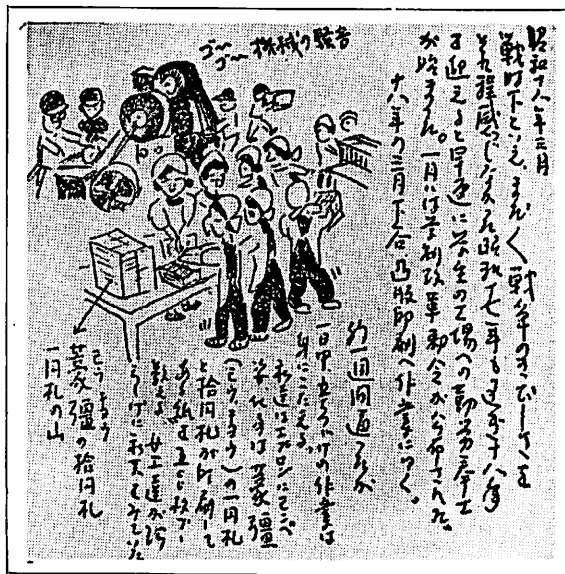 昭和十八年三月
戦時下といえ、まだ〱戦争のきびしさを
それ程感じなかった昭和十七年も過ぎ十八年
を迎えると早速に学生の工場への勤労奉仕
が始まった。一月には学制改革勅令が公布された。
十八年の三月下谷凸版印刷へ作業につく。
約一週間通ったが
一日中立ちづけの作業は
身にこたえる。
私達はエプロンにモンペ
姿 仕事は蒙疆
(もうきょう)の一円札
と拾円札が印刷して
ある紙を五百枚づー
数える 女工達が誇
らしげに教えてくれた
ゴ〜ゴ〜機械の騒音
もうきょう
蒙疆の拾円札
一円札の山